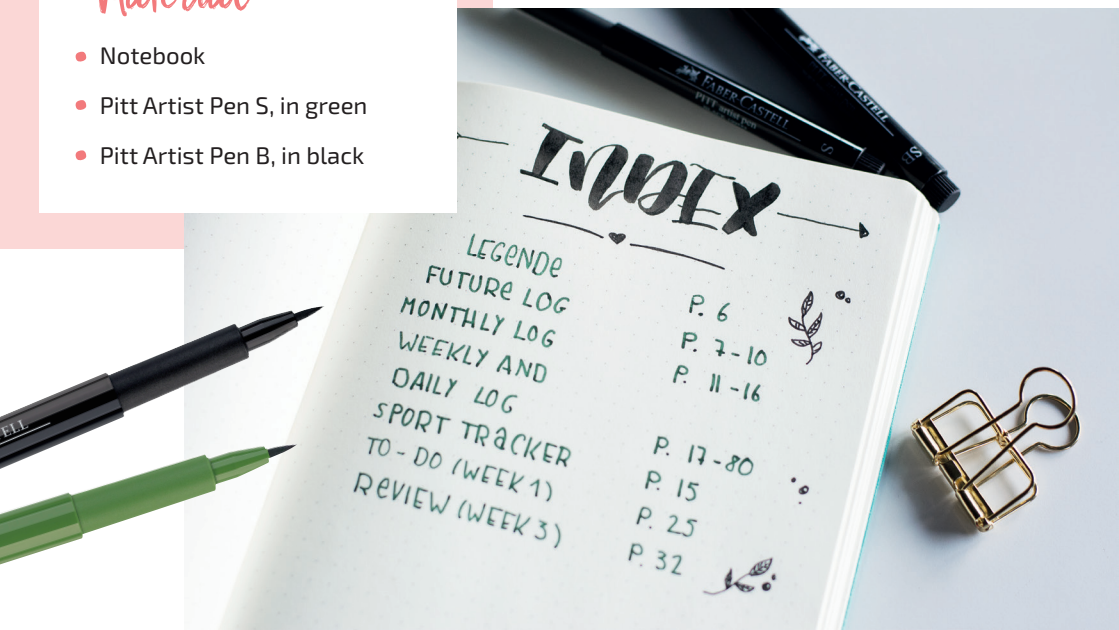 Notebook
Pitt Artist Pen S, in green
Pitt Artist Pen B, in black
FABER-CASTELL
PITT artist pen
S
FABER-CASTELL
SB
INDEX
LEGENDE P. 6
FUTURE LOG P. 7-10
MONTHLY LOG P. 11-16
WEEKLY AND
DAILY LOG P. 17-80
SPORT TRACKER P. 15
TO-DO (WEEK 1) P. 25
REVIEW (WEEK 3) P. 32
ELL